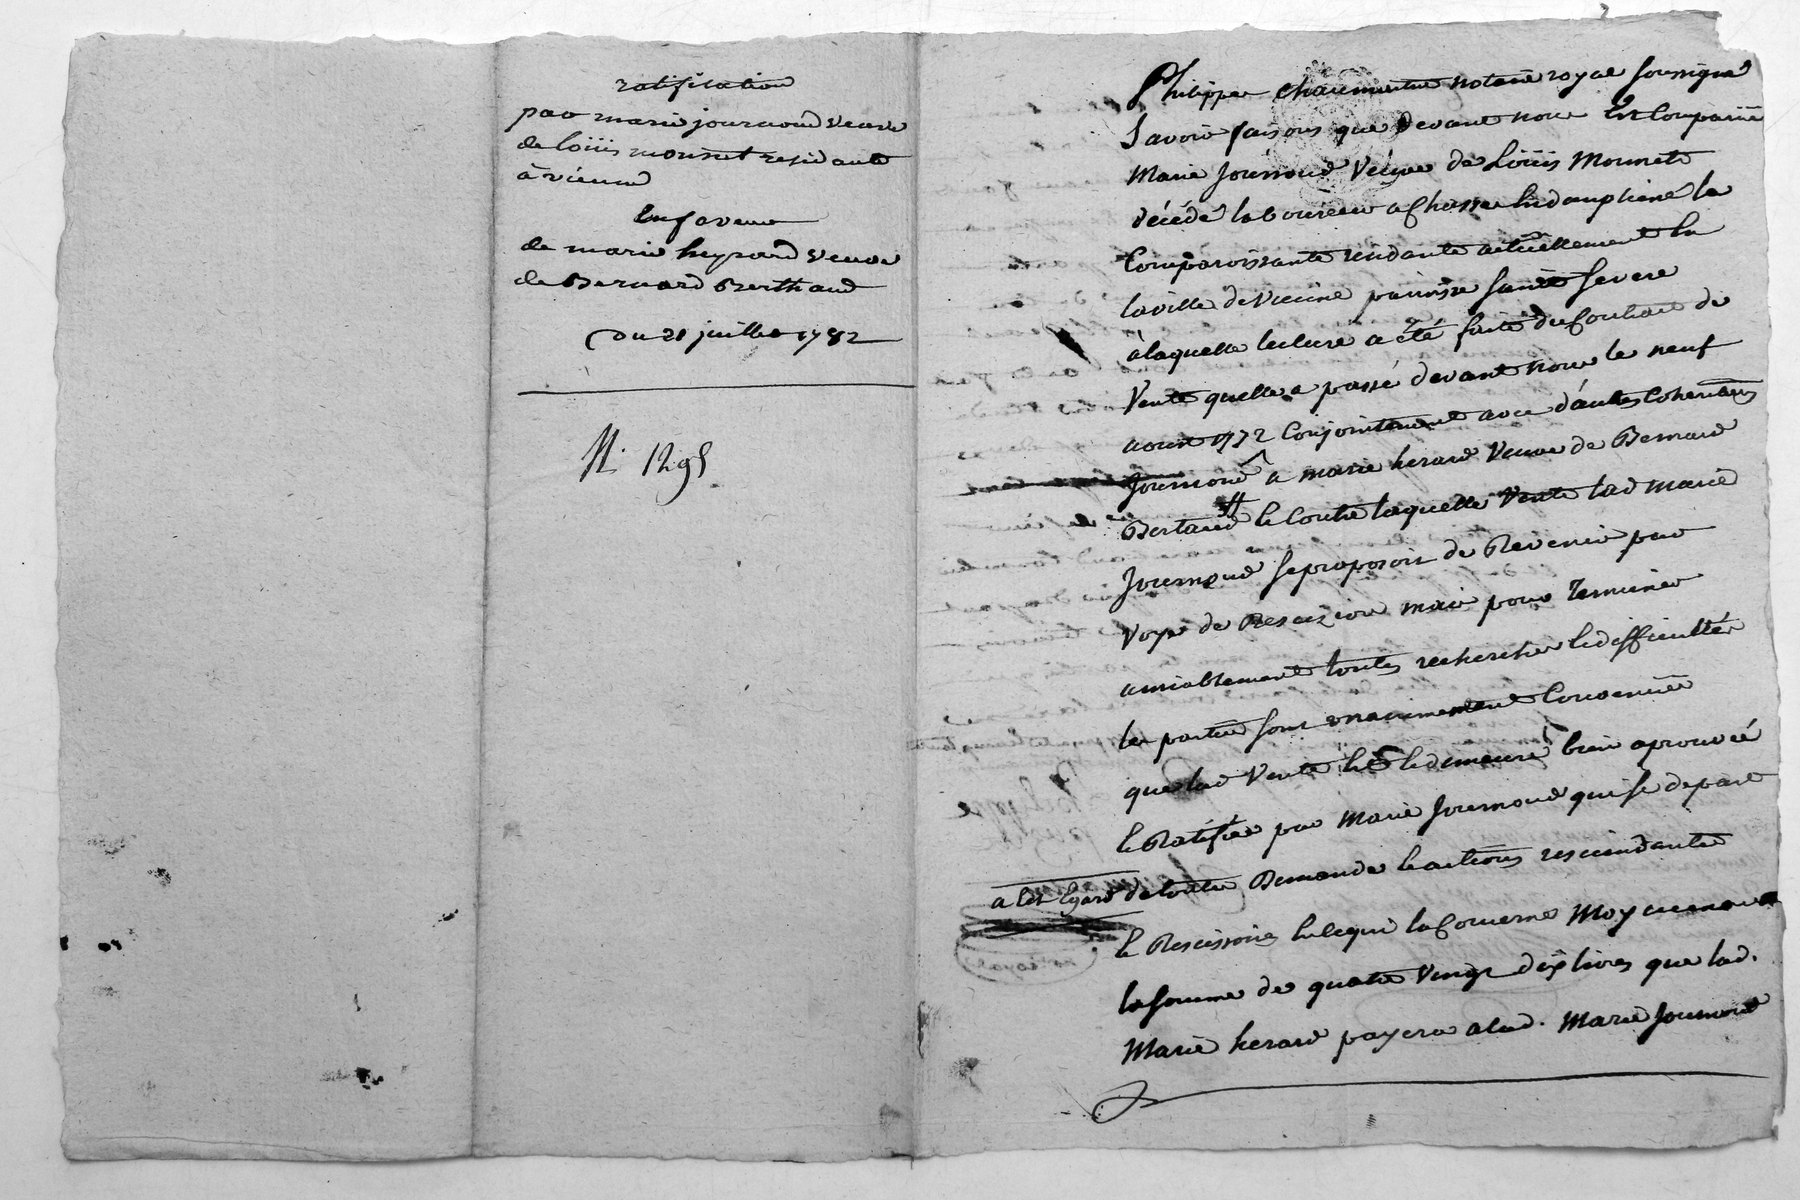 ratification
par marie journoud veuve
de loüis mounet residante
à vienne
En faveur
de marie heyrard veuve
de Bernard Berthaud
Du 21 juillet 1782
N. 1295
Philippe Chaumartin notaire royal soussigné
Savoir faisons que devant nous Est Comparüe
Marie Journoud Veuve de Loüis Mounet
décédé laboureur a Chasse En dauphiné la
Comparoissante residante actüellement En
la ville de vienne paroisse saint severe
à laquelle lecture a été faite du Contrat de
Vente quelle a passé devant nous le neuf
aoust 1772 Conjointement avec d'autres Coheritiers
Journoud a marie herard Veuve de Bernard
Bertaud Et Contre laquelle Vente lad marie
Journoud se proposoit de Revenir par
Voye de Rescizion mais pour Terminer
amiablement toutes recherches Et difficultés
les parties sont unanimement Convenües
que lad Vente Est Et demeure bien aprouvée
Et Ratifiée par Marie Journoud qui se depart
a Cet Egard de toutes Demandes Et actions rescindantes
Et Rescissoires En ce qui la Concerne Moyenant
la somme de quatre Vingt dix livres que lad.
Marie herard payera a lad. Marie Journoud